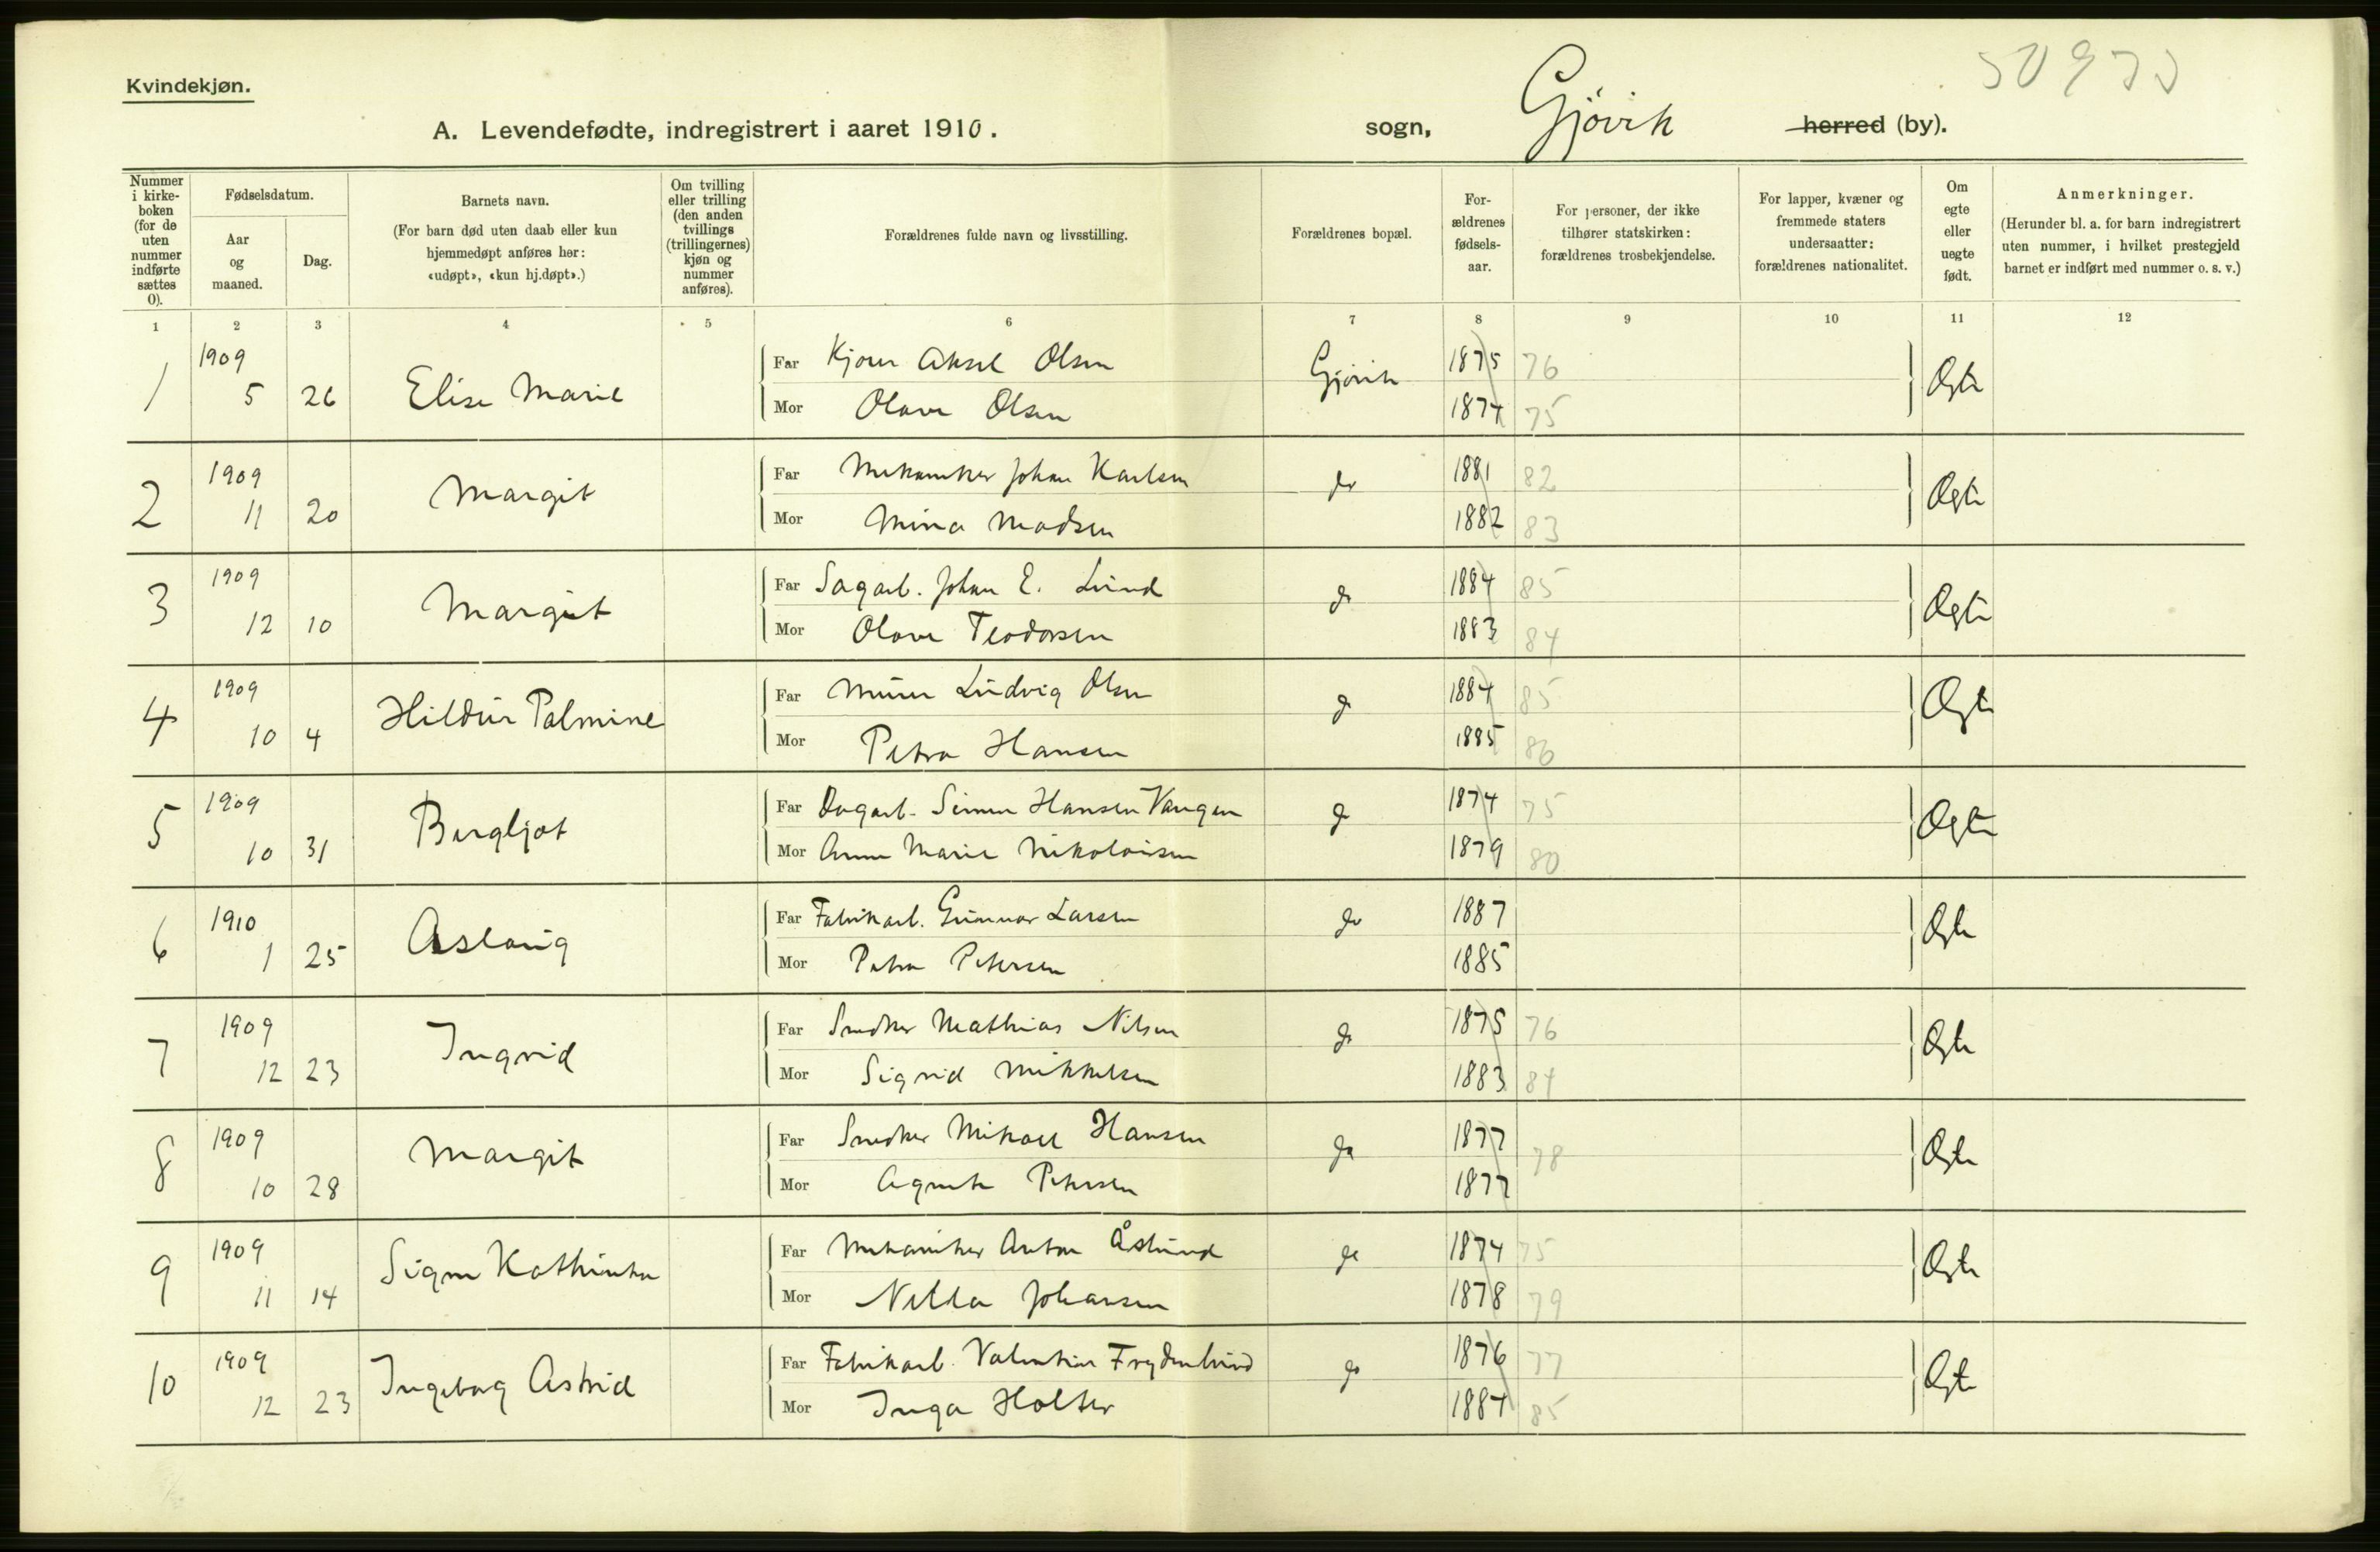 Kvindekjøn.
50973
A. Levendefødte, indregistrert i aaret 1910.
sogn, Gjövik herred (by).
Nummer i kirkeboken (for de uten nummer indførte sættes 0).
Fødselsdatum.
Aar og maaned.
Dag.
Barnets navn.
(For barn død uten daab eller kun hjemmedøpt anføres her: «udøpt», «kun hj.døpt».)
Om tvilling eller trilling (den anden tvillings (trillingernes) kjøn og nummer anføres).
Forældrenes fulde navn og livsstilling.
Forældrenes bopæl.
For-ældrenes fødsels-aar.
For personer, der ikke tilhører statskirken: forældrenes trosbekjendelse.
For lapper, kvæner og fremmede staters undersaatter: forældrenes nationalitet.
Om egte eller uegte født.
Anmerkninger.
(Herunder bl. a. for barn indregistrert uten nummer, i hvilket prestegjeld barnet er indført med nummer o. s. v.)
1 2 3 4 5 6 7 8 9 10 11 12
1 1909 5 26 Elise Marie Far Aksel Olsen Gjövik 1875 76 Ægte
Mor Olava Olsen 1874 75
2 1909 11 20 Margit Far Mekaniker Johan Karlsen do 1881 82 Ægte
Mor Mina Madsen 1882 83
3 1909 12 10 Margit Far Sagarb. Johan E. Lund do 1884 85 Ægte
Mor Olava Teodorsen 1883 84
4 1909 10 4 Hildur Palmine Far Murer Ludvig Olsen do 1884 85 Ægte
Mor Petra Hansen 1885 86
5 1909 10 31 Bergljot Far Dagarb. Simen Hansen Vangen do 1874 75 Ægte
Mor Anne Marie Nikolaisen 1879 80
6 1910 1 25 Aslaug Far Fabrikarb. Gunnar Larsen do 1887 Ægte
Mor Petra Petersen 1885
7 1909 12 23 Ingrid Far Snedker Mathias Nilsen do 1875 76 Ægte
Mor Sigrid Mikkelsen 1883 84
8 1909 10 28 Margit Far Snedker Mikael Hansen do 1877 78 Ægte
Mor Agnete Petersen 1877
9 1909 11 14 Signe Kathinka Far Mekaniker Anton Åslund do 1874 75 Ægte
Mor Johansen 1878 79
10 1909 12 23 Ingeborg Astrid Far Fabrikarb. Valentin Frydenlund do 1876 77 Ægte
Mor Inga Holter 1884 85